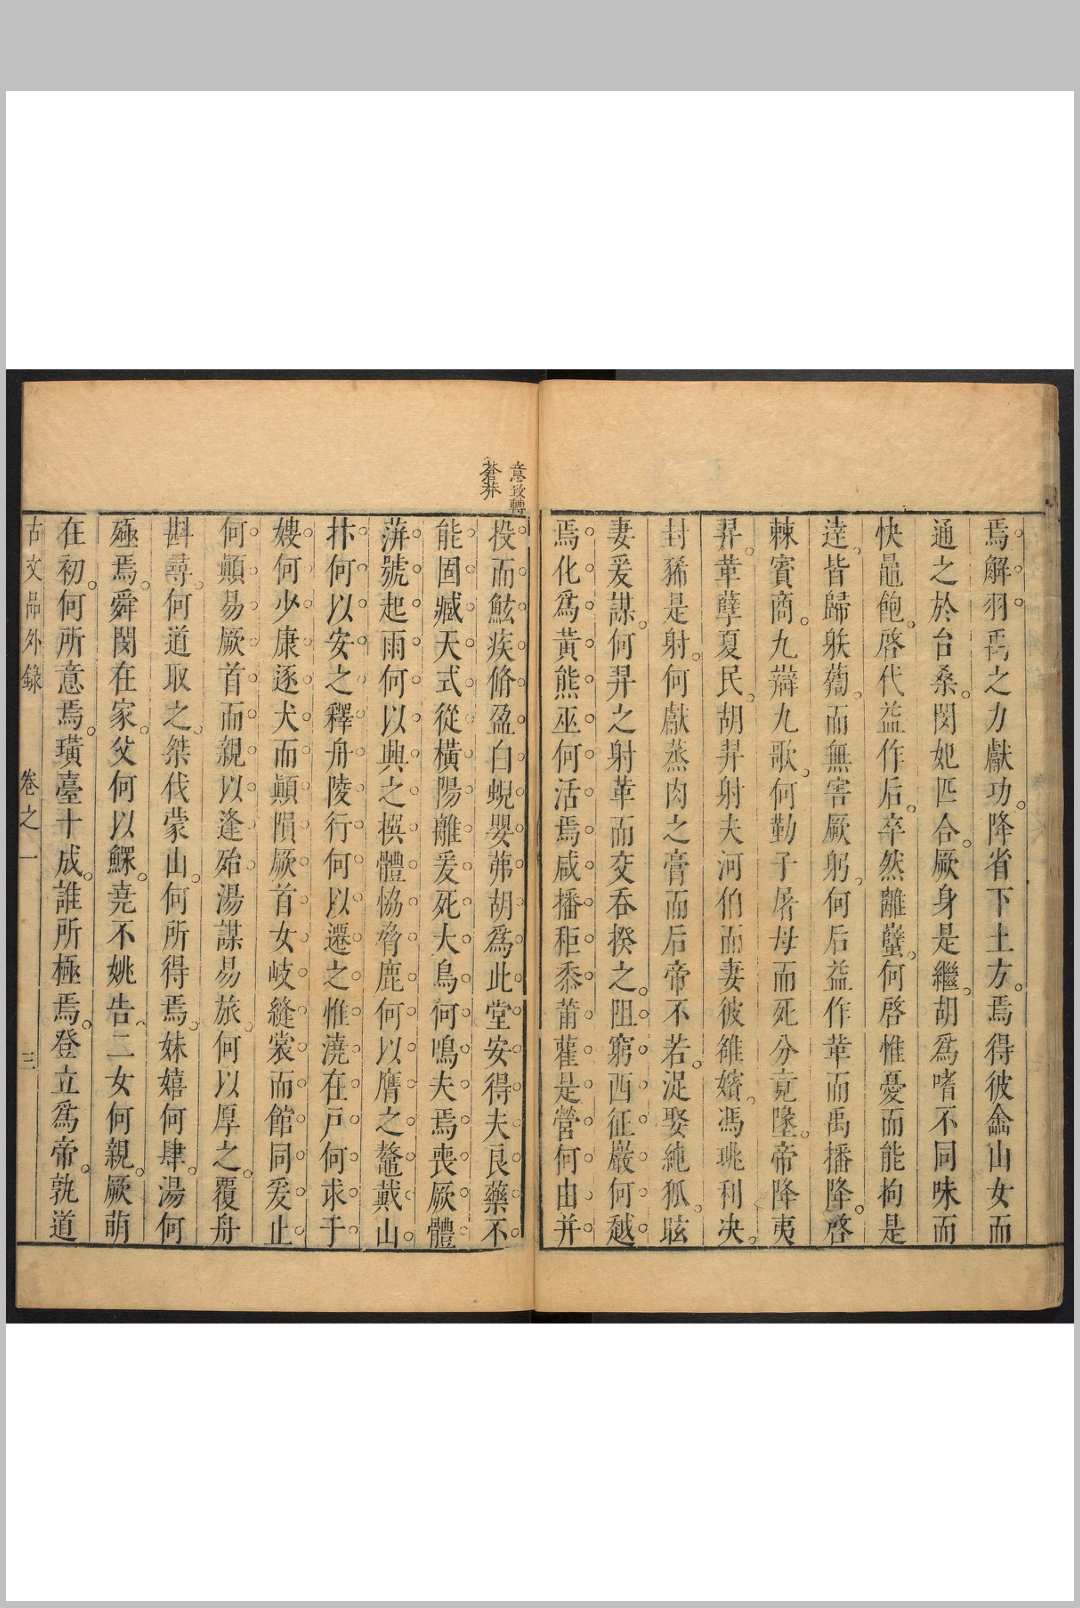 焉解羽禹之力獻功降省下土方焉得彼嵞山女而
通之於台桑閔妃匹合厥身是繼胡爲嗜不同味而
快鼂飽啓代益作后卒然離蠥何啓惟憂而能拘是
達皆歸䠶䉗而無害厥躬何后益作革而禹播降啓
棘賓商九辯九歌何勤子屠母而死分竟墜帝降夷
羿革孽夏民胡羿射夫河伯而妻彼雒嬪馮珧利决
封豨是射何獻蒸肉之膏而后帝不若浞娶純狐眩
妻爰謀何羿之射革而交吞揆之阻窮西征巖何越
焉化爲黃熊巫何活焉咸播秬黍莆雚是營何由并
投而鮌疾脩盈白蜺嬰茀胡爲此堂安得夫良藥不
能固臧天式從橫陽離爰死大鳥何鳴夫焉喪厥體
蓱號起雨何以興之撰體恊脅鹿何以膺之鼇戴山
抃何以安之釋舟陵行何以遷之惟澆在戶何求于
嫂何少康逐犬而顚隕厥首女岐縫裳而館同爰止
何顚易厥首而親以逢殆湯謀易旅何以厚之覆舟
斟尋何道取之桀伐蒙山何所得焉妹嬉何肆湯何
殛焉舜閔在家父何以鰥堯不姚告二女何親厥萌
在初何所意焉璜臺十成誰所極焉登立爲帝孰道
古文品外錄 卷之一 三